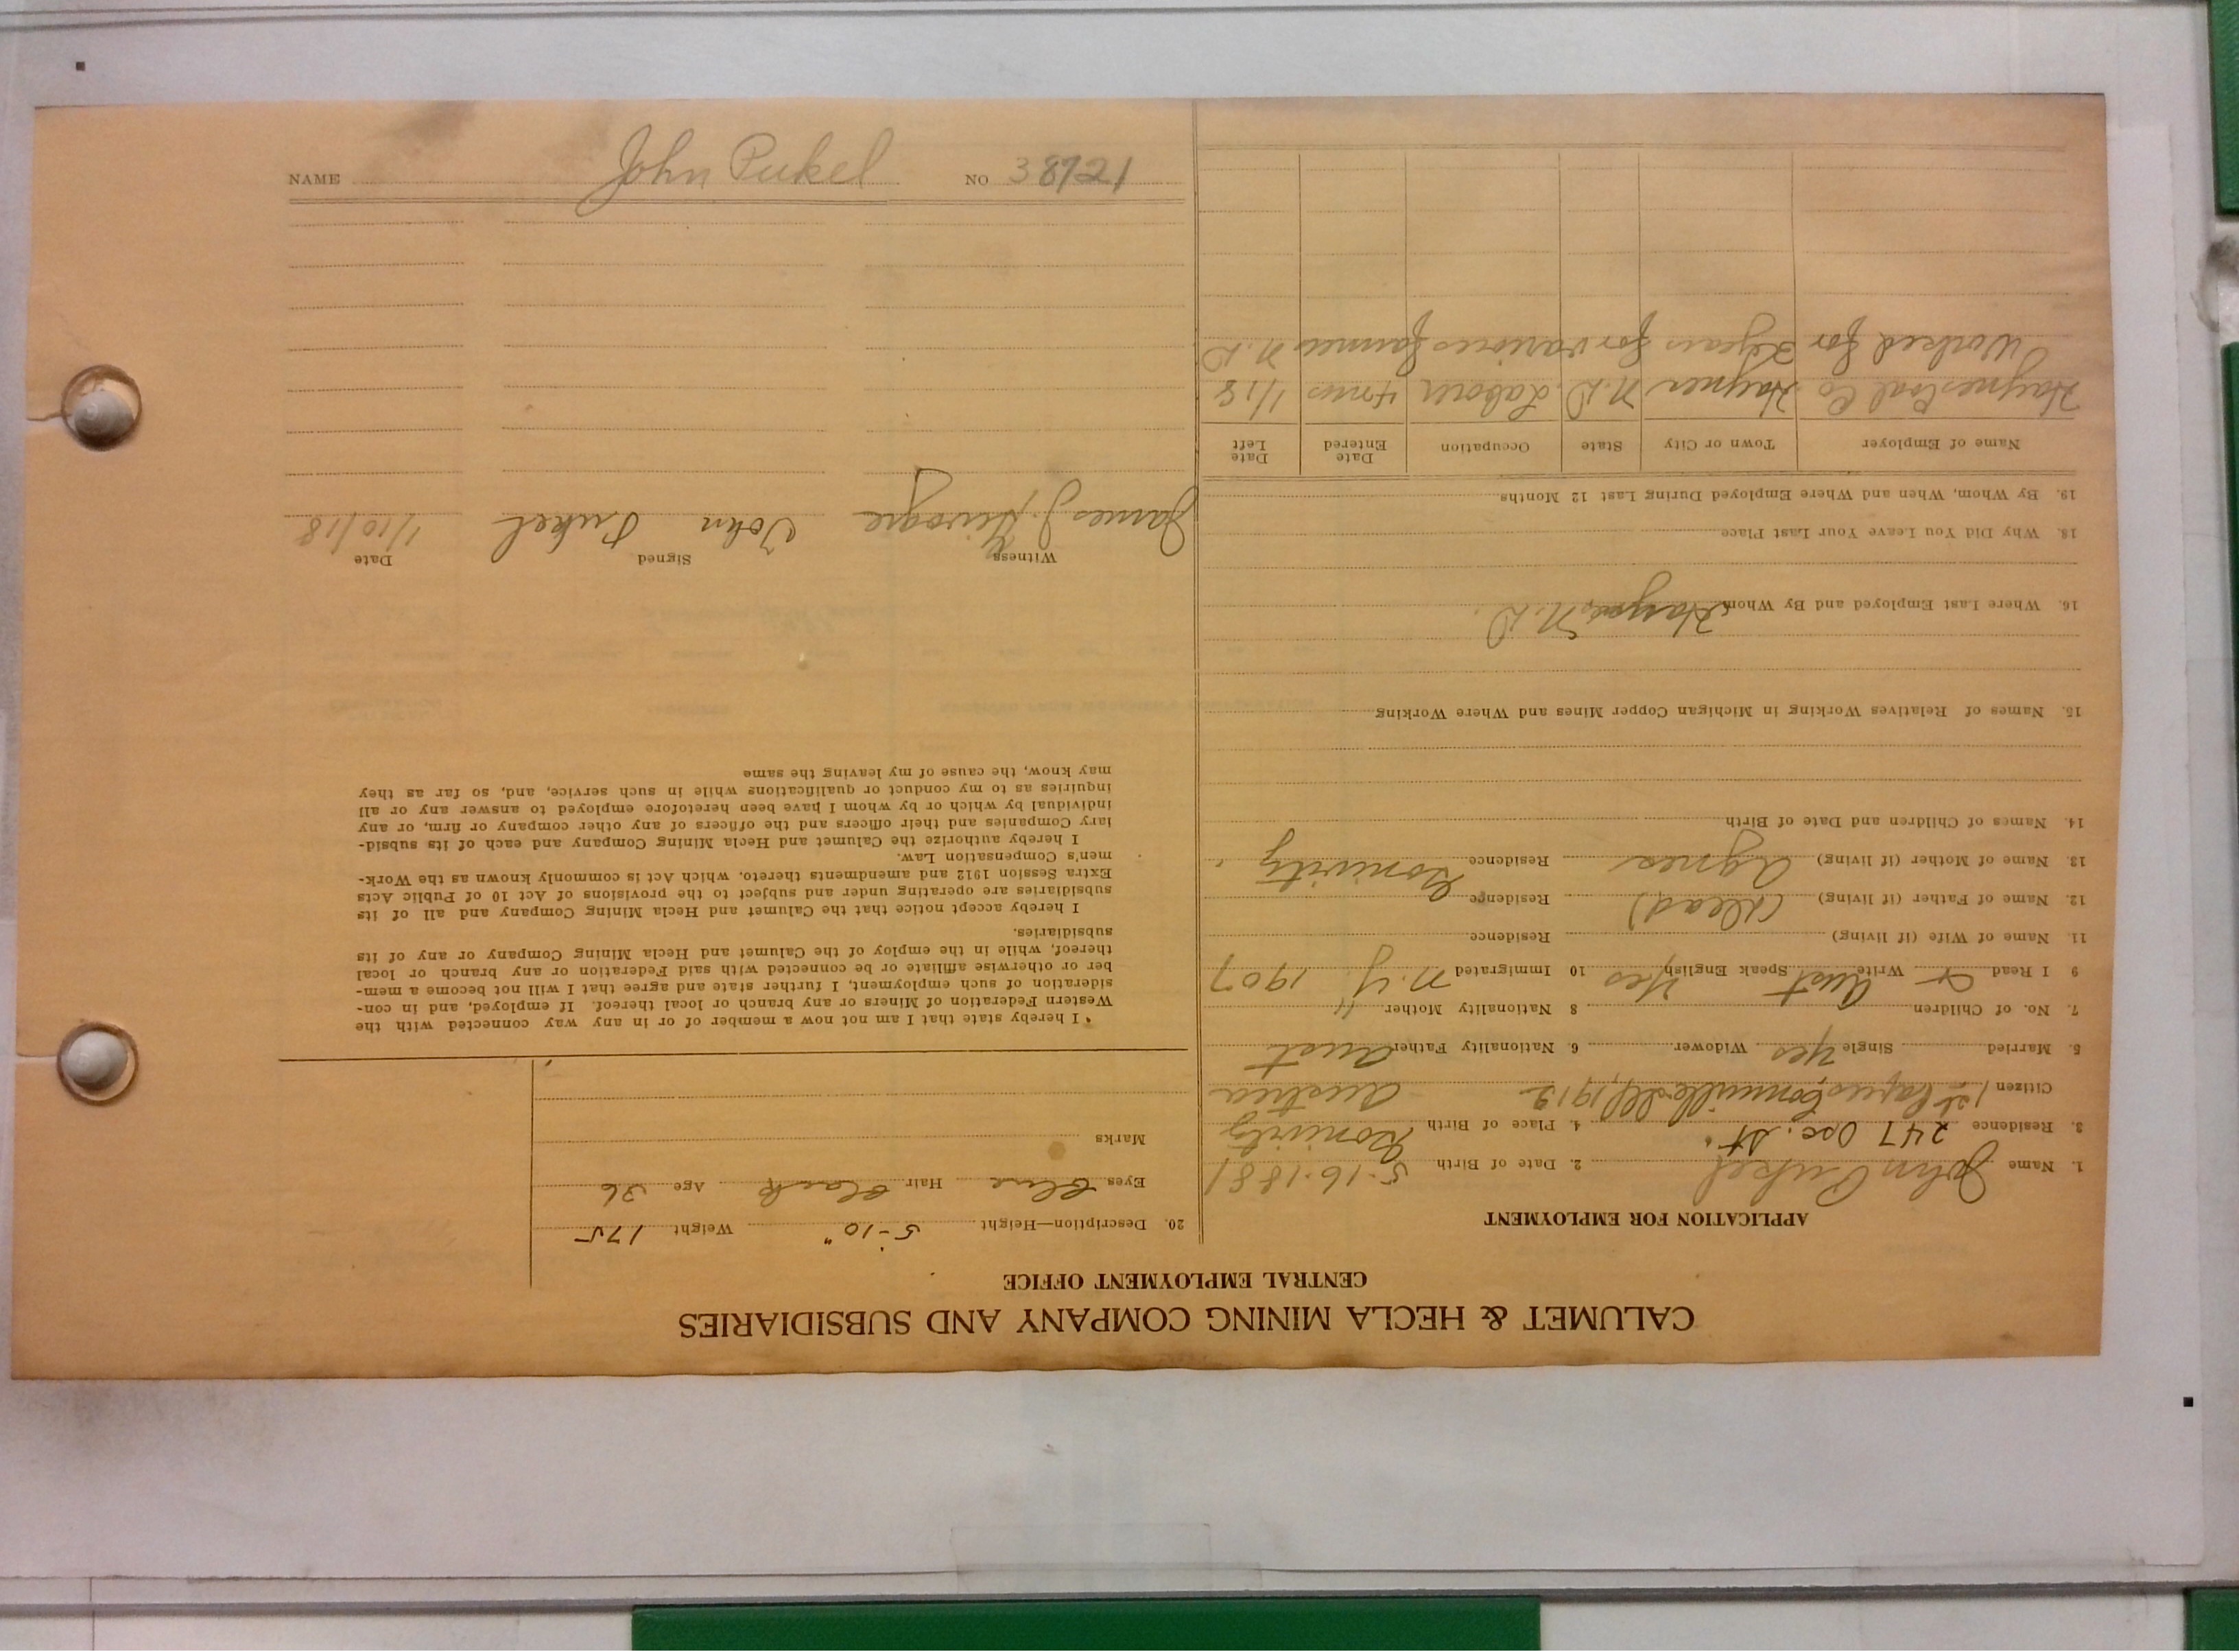 CALUMET & HECLA MINING COMPANY AND SUBSIDIARIES
CENTRAL EMPLOYMENT OFFICE
APPLICATION FOR EMPLOYMENT
1. Name John Pukel 2. Date of Birth 5-16-1881
3. Residence 247 Osc. St. 4. Place of Birth
Citizen 1st Papers 1912 Austria
5. Married Single Yes Widower 6. Nationality Father Aust
7. No. of Children 8 Nationality Mother "
9 I Read & Write Aust Speak English Yes 10 Immigrated N.Y. 1907
11. Name of Wife (if living) Residence
12. Name of Father (if living) (Dead) Residence
13. Name of Mother (if living) Agnes Residence
14. Names of Children and Date of Birth
15. Names of Relatives Working in Michigan Copper Mines and Where Working
16. Where Last Employed and By Whom Haynes, N.D.
18. Why Did You Leave Your Last Place
19. By Whom, When and Where Employed During Last 12 Months
Name of Employer Town or City State Occupation Date Entered Date Left
Haynes Coal Co Haynes N.D. Laborer 4 mos 1/18
Worked for 3 years for various farmers N.D
20. Description—Height 5-10" Weight 175
Eyes Blue Hair Black Age 36
Marks
I hereby state that I am not now a member of or in any way connected with the
Western Federation of Miners or any branch or local thereof. If employed, and in con-
sideration of such employment, I further state and agree that I will not become a mem-
ber or otherwise affiliate or be connected with said Federation or any branch or local
thereof, while in the employ of the Calumet and Hecla Mining Company or any of its
subsidiaries.
I hereby accept notice that the Calumet and Hecla Mining Company and all of its
subsidiaries are operating under and subject to the provisions of Act 10 of Public Acts
Extra Session 1912 and amendments thereto, which Act is commonly known as the Work-
men's Compensation Law.
I hereby authorize the Calumet and Hecla Mining Company and each of its subsid-
iary Companies and their officers and the officers of any other company or firm, or any
individual by which or by whom I have been heretofore employed to answer any or all
inquiries as to my conduct or qualifications while in such service, and, so far as they
may know, the cause of my leaving the same
Witness Signed Date
James J. John Pukel 1/10/18
NAME John Pukel NO 38721